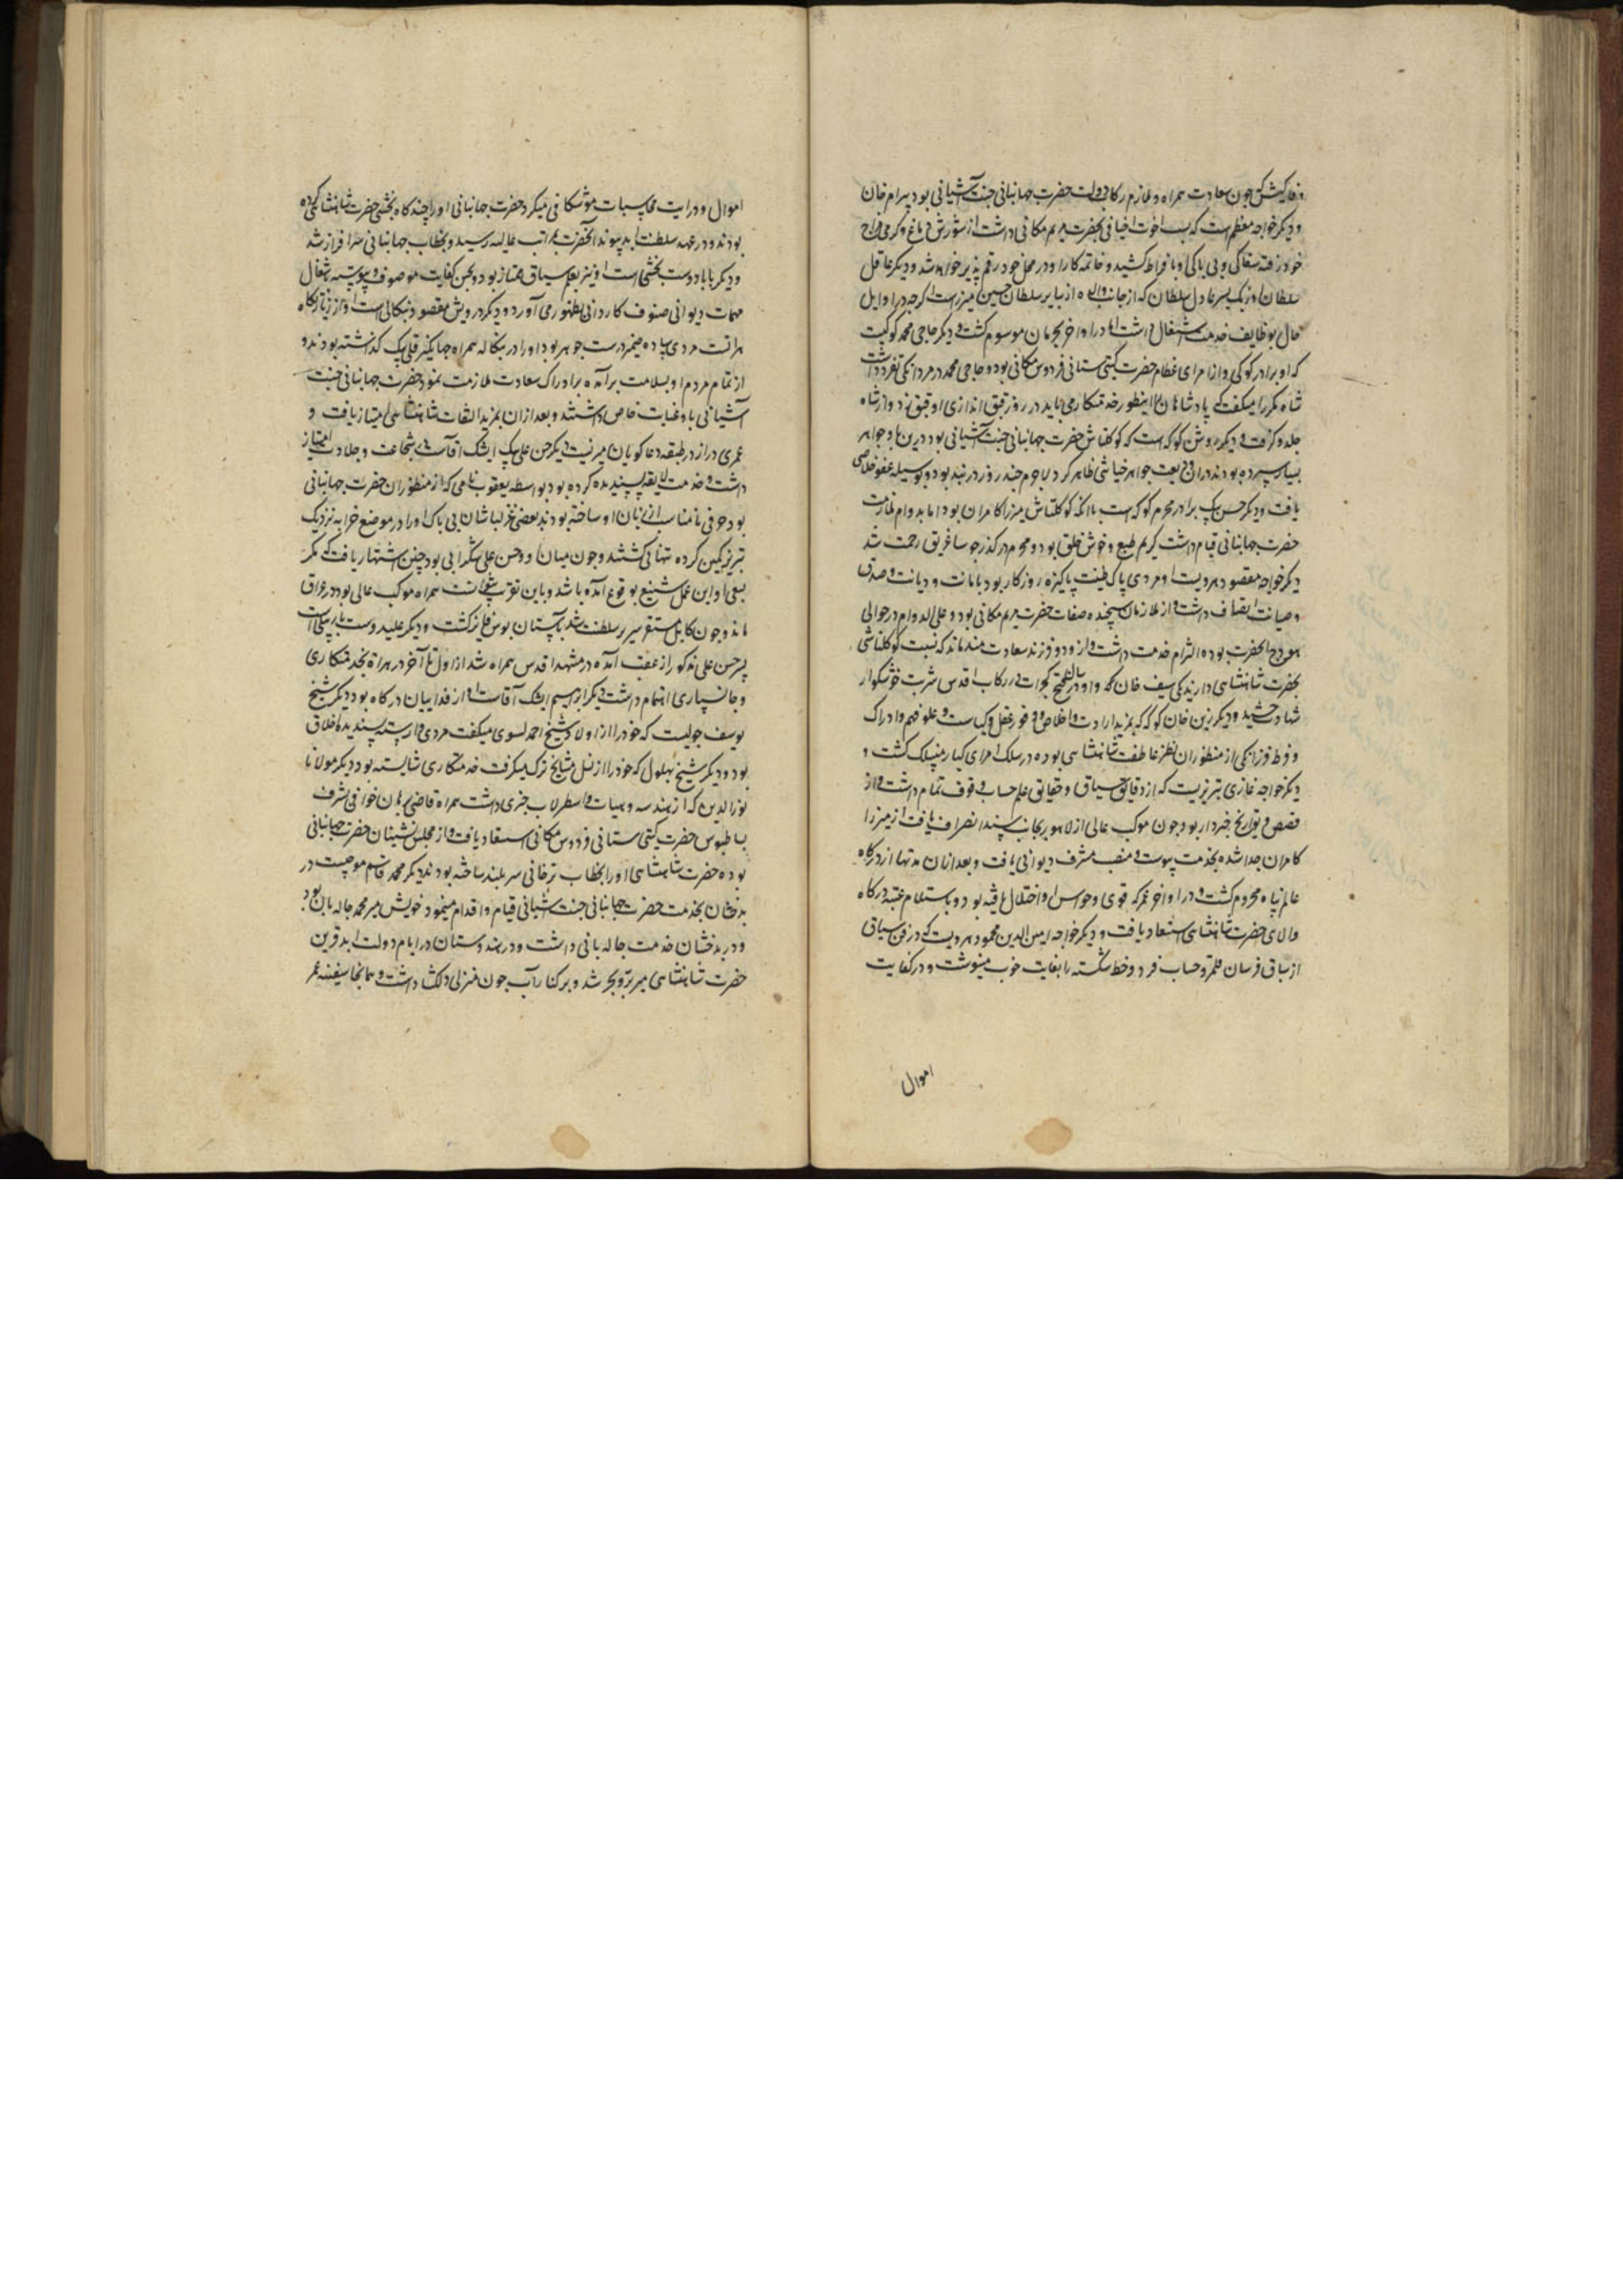 وفاکیش که چون سعادت همراه و ملازم رکاب دولت حضرت جهانبانی جنت آشیانی بود بیرام خان
و دیگر خواجه معظم است که بسبب اخوت اخیافی بحضرت مریم مکانی داشت از شورش دماغ و گرمی مزاج
خود رفته سفاکی و بی باکی او بافراط کشید و خاتمه کار او در محل خود رقم پذیر خواهد شد و دیگر عاقل
سلطان اوزبک پسر عادل سلطان که از جانب والده از نبایر سلطان حسین میرزاست اگرچه در اوایل
حال بوظایف خدمت اشتغال داشت اما در اواخر بحرمان موسوم گشت و دیگر حاجی محمد کوکیست
که او برادر کوکی و از امرای عظام حضرت گیتی ستانی فردوس مکانی بود و حاجی محمد در مردانگی تفرد داشت
شاه مکرر میگفت که پادشاهان را اینطور خدمتکار می باید در روز قبق اندازی او قبق زد و از شاه
جلدو گرفت و دیگر روشن کوکه است که کوکلتاش حضرت جهانبانی جنت آشیانی بود درین راه جواهر
بسیار سپرده بودند در آن ودیعت جواهر خیانتی ظاهر کرد لاجرم چند روز در بند بود و بوسیله عفو خلاصی
یافت و دیگر حسن بیک برادر محرم کوکه است باآنکه کوکلتاش میرزا کامران بود اما بدوام ملازمت
حضرت جهانبانی قیام داشت کریم طبع و خوش خلق بود و هم در گذر چوسا غریق رحمت شد
دیگر خواجه مقصود هرویست او مردی پاک طینت پاکیزه روزگار بود بامانت و دیانت و صدق
و صیانت اتصاف داشت و از ملازمان سنجیده صفات حضرت مریم مکانی بود و علی الدوام در حوالی
هودج آنحضرت بوده التزام خدمت داشت و از و دو فرزند سعادتمند ماند که نسبت کوکلتاشی
بحضرت شاهنشاهی دارند یکی سیف خان که او در سال فتح گجرات در رکاب اقدس شربت خوشگوار
شهادت چشید و دیگر زین خان کوکه که بمزید ارادت و اخلاص و وفور عقل و کیاست و علو فهم و ادراک
و فرط فرزانگی از منظوران نظر عاطفت شاهنشاهی بوده در سلک امرای کبار منسلک گشت و
دیگر خواجه غازی تبریزیست که از دقایق سیاق و حقایق علم حساب وقوف تمام داشت و از
قصص و تواریخ خبردار بود چون موکب عالی از لاهور بجانب سند انصراف یافت از میرزا
کامران جدا شده بخدمت پیوست و منصب مشرف دیوانی یافت و بعد ازان مدتها از درگاه
عالم پناه محروم گشت و در اواخر عمر که قوی و حواس او اختلال یافته بود و باستلام عتبه درگاه
والای حضرت شاهنشاهی استسعاد یافت و دیگر خواجه امین الدین محمود هرویست که در فن سیاق
از سباق فرسان قلمرو حساب فرد و خط شکسته را بغایت خوب مینوشت و در کفایت
اموال
اموال و درایت محاسبات موشکافی میکرد حضرت جهانبانی او را چندگاه بخشی حضرت شاهنشاهی کرده
بودند و در عهد سلطنت ابد پیوند آنحضرت بمراتب عالیه رسید و بخطاب جهانبانی سرافراز شد
و دیگر بابا دوست بخشی است او نیز بعلم سیاق ممتاز بود و بحسن کفایت موصوف و پیوسته باشتغال
مهمات دیوانی صنوف کاردانی بظهور می آورد و دیگر درویش مقصود بنگالی است او از زیارتگاه
هراتست مردی ساده ضمیر درست جوهر بود او را در بنگاله همراه جهانگیر قلی بیک گذاشته بودند و
از تمام مردم او بسلامت برآمده برادراک سعادت ملازمت نمود حضرت جهانبانی جنت
آشیانی باو عنایت خاص داشتند و بعد ازان بمزید التفات شاهنشاهی امتیاز یافت و
عمری دراز در طبقه دعاگویان میزیست دیگر حسن علی بیک ایشک آقاست که بشجاعت و جلادت امتیاز
داشت و خدمت لایقه پسندیده کرده بود بواسطه یعقوب نامی که از منظوران حضرت جهانبانی
بود حرفی نامناسب از زبان او ساخته بودند بعضی قزلباشان بی باک او را در موضع خرابه نزدیک
تبریز کمین کرده تنها کشتند و چون میان او و حسن علی شکرابی بود چنین اشتهار یافت که مگر
بسعی او این عمل شنیع بوقوع آمده باشد و باین تقریب نتوانست همراه موکب عالی بود در عراق
ماند و چون کابل مستقر سریر سلطنت شد بآستان بوس فایز گشت و دیگر علی دوست باربیگی است
پسر حسن علی مذکور از عقب آمده در مشهد اقدس همراه شد از اول تا آخر در هر راه بخدمتکاری
و جانسپاری اهتمام داشت دیگر ابراهیم ایشک آقاست او از فداییان درگاه بود دیگر شیخ
یوسف چولیست که خود را از اولاد شیخ احمد یسوی میگفت مردی وارسته پسندیده اخلاق
بود و دیگر شیخ بهلول که خود را از نسل مشایخ ترک میگرفت خدمتکاری شایسته بود دیگر مولانا
نورالدین که از هندسه و هیات و اسطرلاب خبری داشت همراه قاضی برهان خوافی بشرف
بساطبوس حضرت گیتی ستانی فردوس مکانی استسعاد یافت و از مجلس نشینان حضرت جهانبانی
بوده حضرت شاهنشاهی او را بخطاب ترخانی سربلند ساخته بودند دیگر محمد قاسم موجیست در
بدخشان بخدمت حضرت جهانبانی جنت آشیانی قیام و اقدام مینمود خویش میر محمد جاله بان بود
و در بدخشان خدمت جاله بانی داشت و در هندوستان در ایام دولت ابد قرین
حضرت شاهنشاهی میر بر و بحر شد و بر کنار آب جون منزلی دلکشا داشت و همانجا سفینه عمر